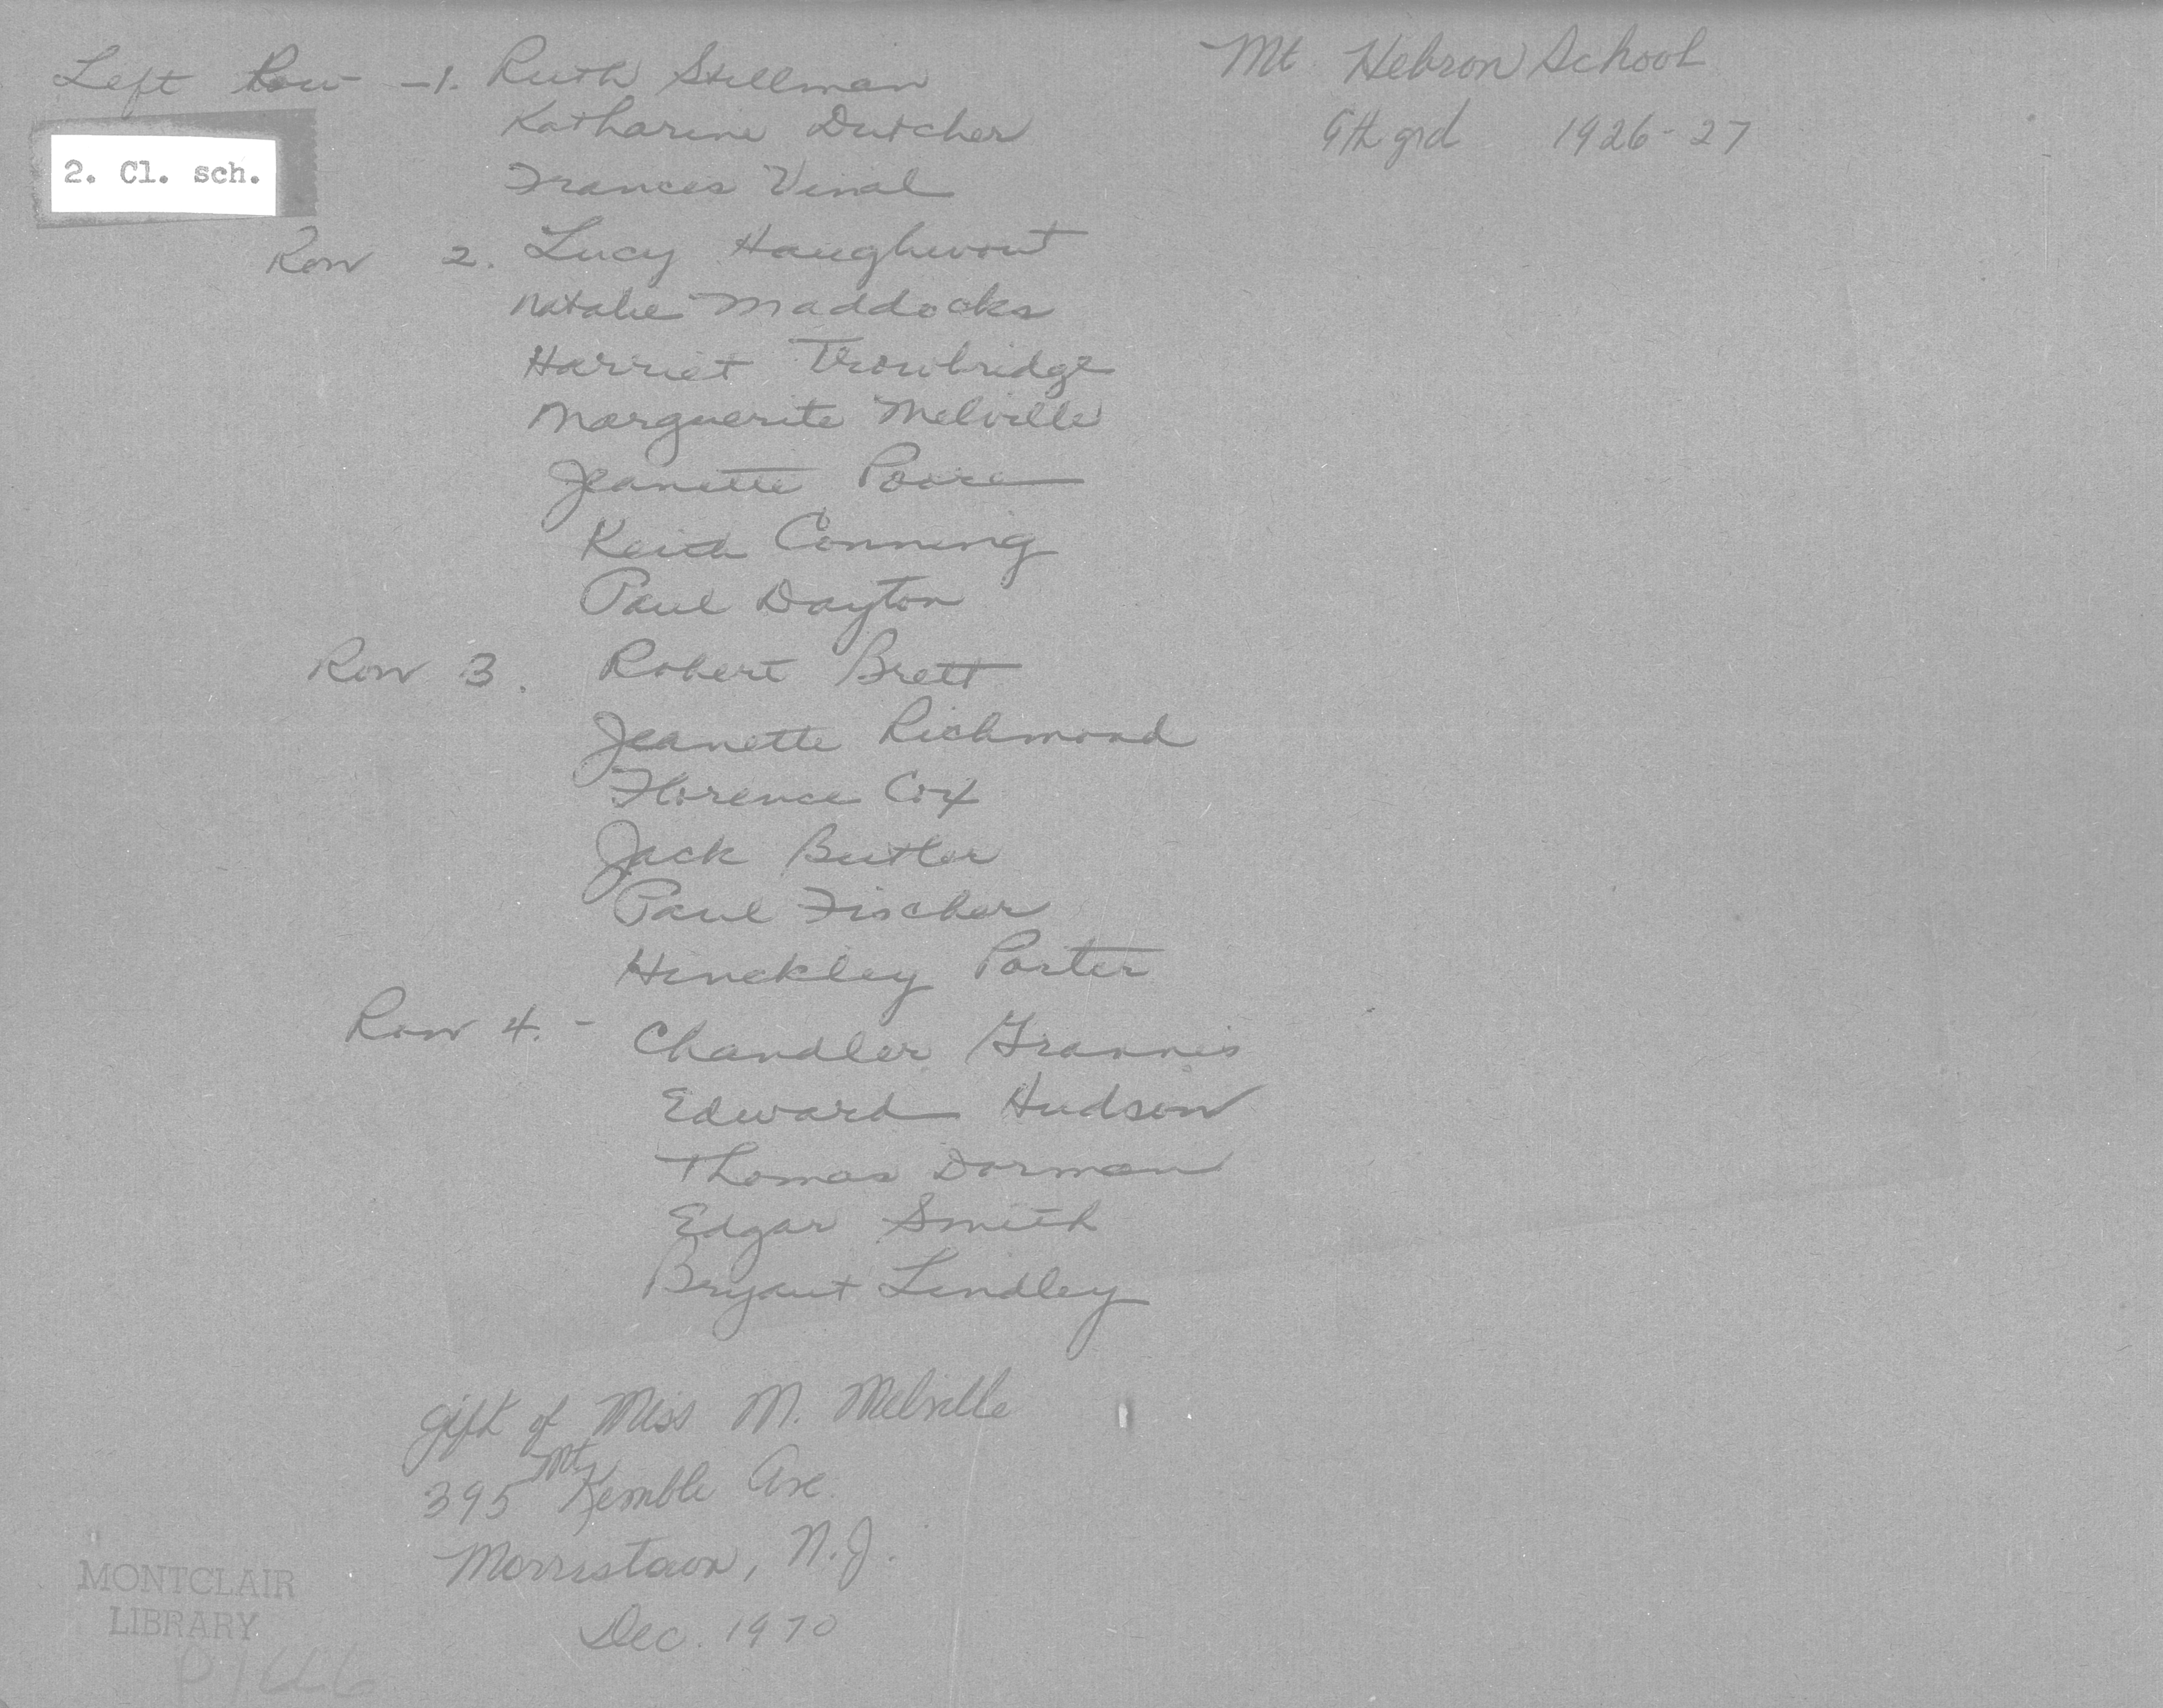 Mt Hebron School
9th grd 1926-27
Left Row -1. Ruth Stillman
Katharine Dutcher
2. Cl. sch.
Frances Vinal
Row 2. Lucy Haughwout
Natalie Maddocks
Harriet Trowbridge
Marguerite Melville
Jeanette Poore
Keith Conning
Paul Dayton
Row 3. Robert Brett
Jeanette Richmond
Florence Cox
Jack Butler
Paul Fischer
Hinckley Porter
Row 4. - Chandler Grannis
Edward Hudson
Thomas Dorman
Edgar Smith
Bryant Lindley
gift of Miss M. Melville
395 Mt. Kemble Ave.
Morristown, N.J.
Dec. 1970
MONTCLAIR
LIBRARY
P1646